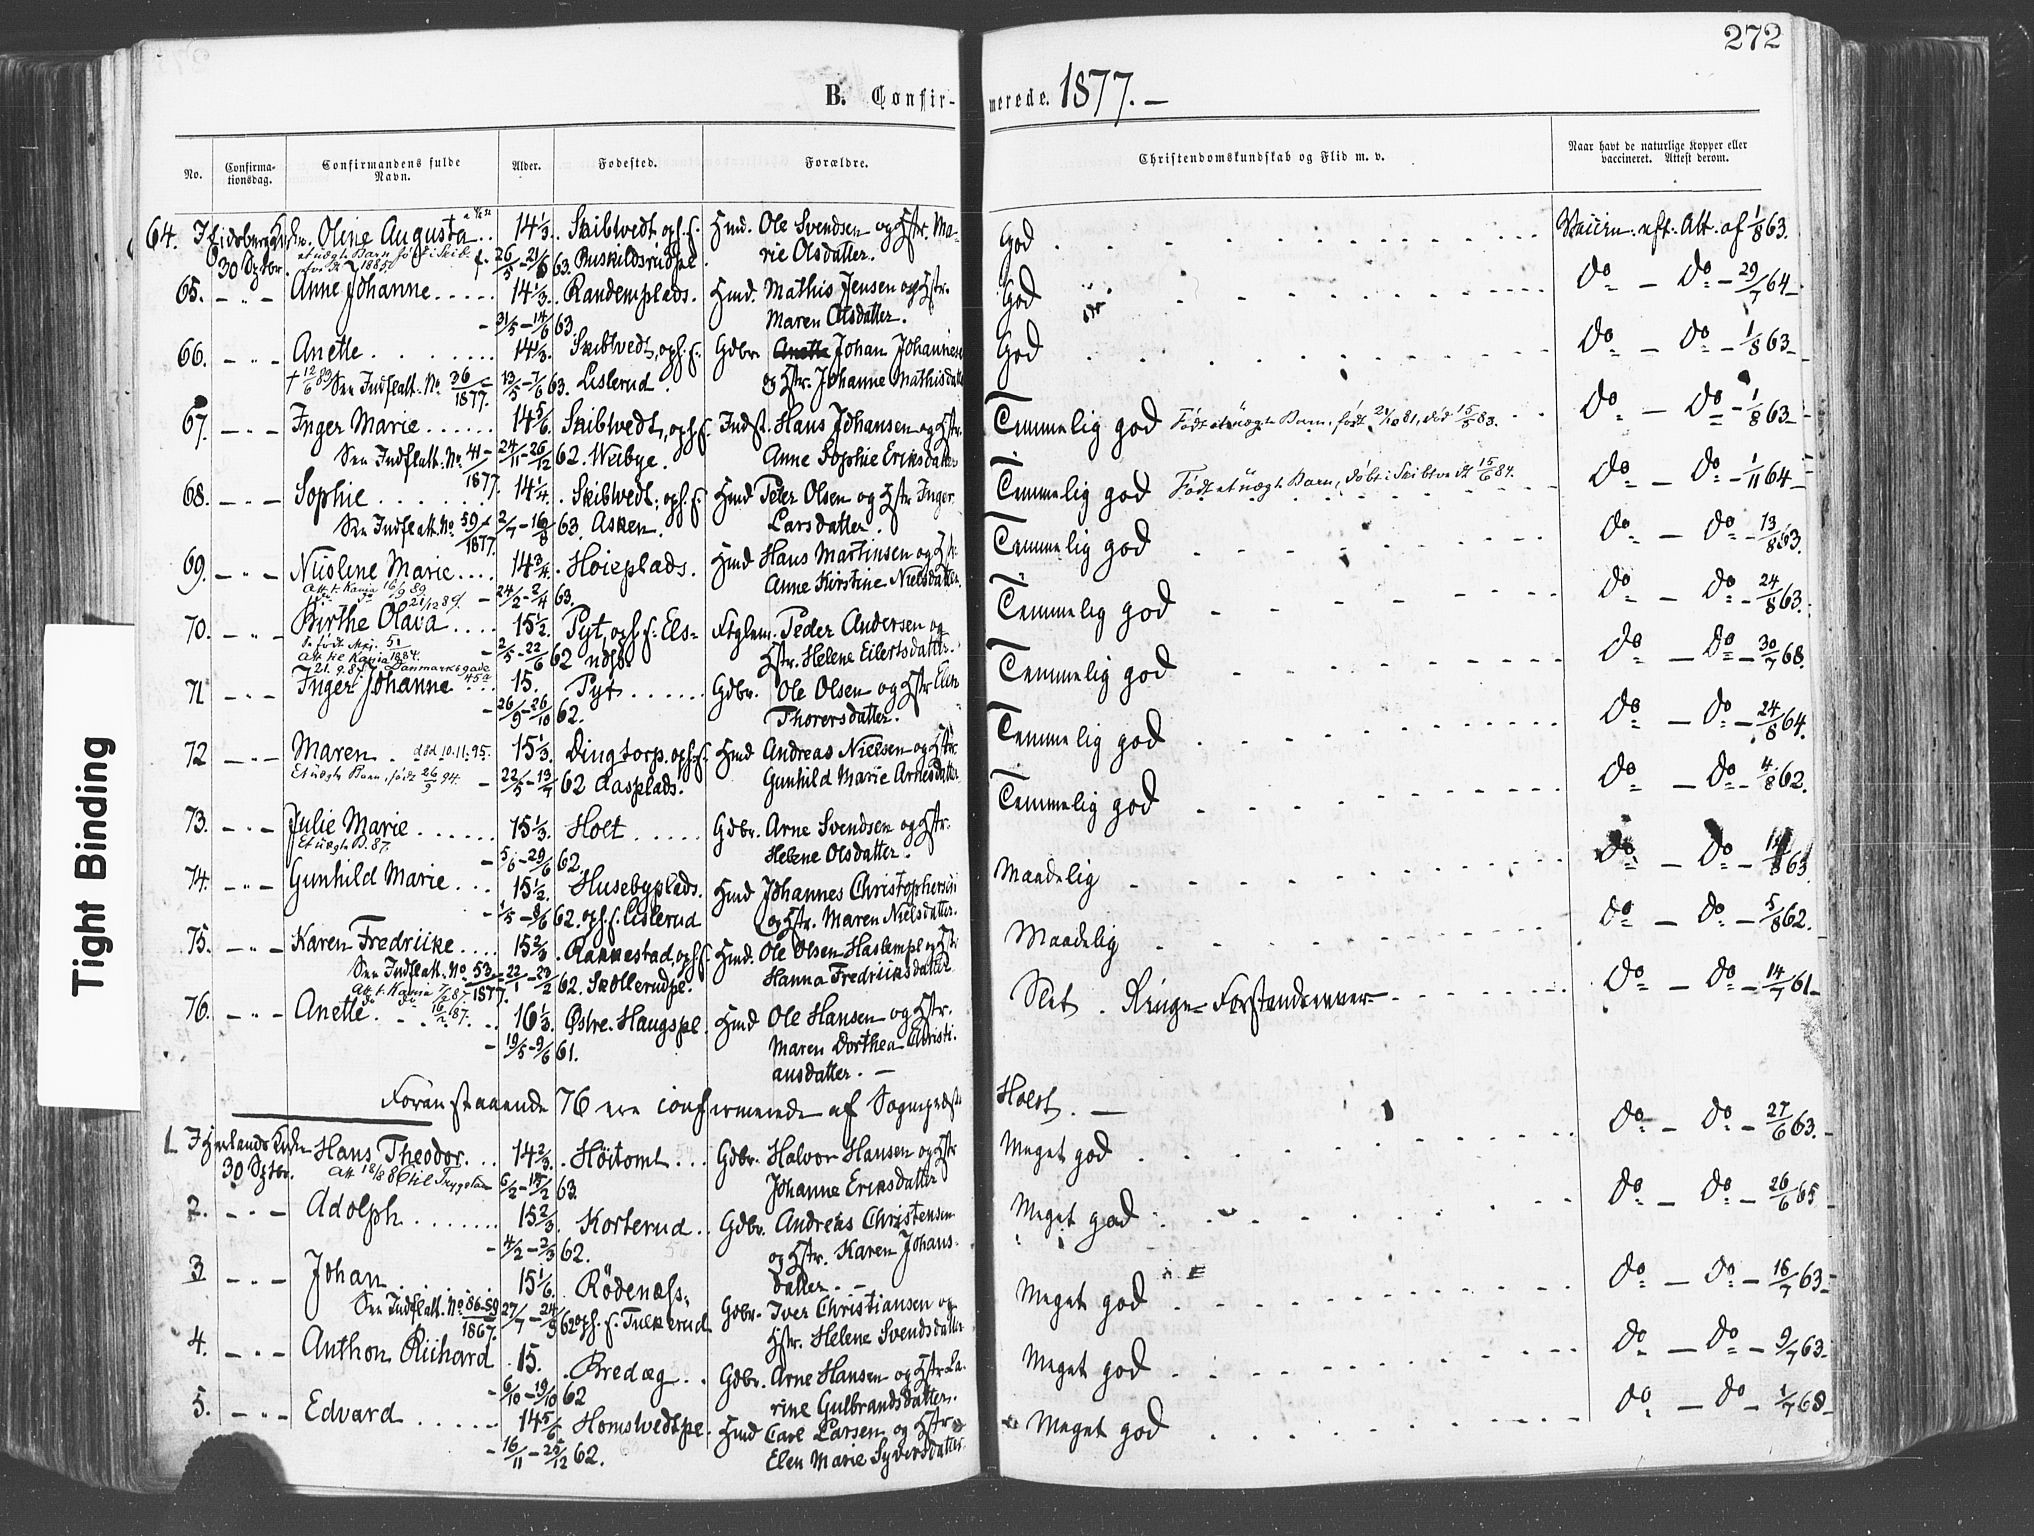 272
B. Confirmerede. 1877. —
No.
Confirmationsdag.
Confirmandens fulde Navn.
Alder.
Fødested.
Forældre.
Christendomskundskab og Flid m. v.
Naar havt de naturlige Kopper eller vaccineret. Attest derom.
64. I Eidsberg Kirke. Oline Augusta 14 1/3. Skibtvedt, oph. f. Hmd. Ole Svendsen og Hstr. Ma- God Vaccin. eft. Att. af 1/8 63.
30 Sptbr. 26/5 - 21/6 63. Buskildsrudpl. rie Olsdatter.
65. - " - Anne Johanne 14 1/3. Randemplads. Hmd. Mathis Jensen og Hstr. God Do - Do - 29/7 64
31/5 - 14/6 63. Maren Olsdatter.
66. - " - Anette 14 1/3. Skibtvedt, oph. f. Gdbr. Johan Johannesen God Do - Do - 1/8 63
† 12/6 89 See Indflatt. No 36/1877. 13/5 - 7/6 63. Lislerud. og Hstr. Johanne Mathisdatter
67. - " - Inger Marie 14 5/6. Skibtvedt, oph. f. Indst. Hans Johansen og Hstr. Temmelig god Født et uægte Barn, født 21/10 81, død 15/5 83. Do - Do - 1/8 63
See Indflatt. No 41/1877. 24/11 - 26/12 62. Weibye. Anne Sophie Eriksdatter
68. - " - Sophie 14 1/4. Skibtvedt, oph. f. Hmd Peter Olsen og Hstr Inger Temmelig god Født et uægte Barn, døbt i Skibtvedt 15/6 84. Do - Do - 1/11 64
See Indflatt. No 59/1877. 2/7 - 16/8 63. Asken. Larsdatter.
69. - " - Nicoline Marie 14 3/4. Høieplads. Hmd Hans Martinsen og Hstr. Temmelig god Do - Do - 13/8 63.
24/2 - 2/4 63. Anne Kirstine Nielsdatter.
70. - " - Birthe Olava 15 1/2. Pyt, oph. f. Els- Ftglem. Peder Andersen og Temmelig god Do - Do - 24/8 63.
2/5 - 22/6 62 Hstr. Helene Eilertsdatter.
71 - " - Inger Johanne 15. Pyt Gdbr. Ole Olsen og Hstr Elen Temmelig god Do - Do - 30/7 68.
26/9 - 26/10 62. Thorersdatter.
72 - " - Maren død 10.11.95. 15 1/3. Dingtorp. oph. f. Hmd Andreas Nielsen og Hstr. Temmelig god Do - Do - 24/8 64.
Et uægte Barn, født 26/9 94. 22/5 - 13/7 62 Aasplads. Gunhild Marie Arnesdatter
73. - " - Julie Marie 15 1/3. Holt Gdbr. Arne Svendsen og Hstr. Temmelig god Do - Do - 4/8 62.
Et uægte B. 87. 5/6 - 29/6 62. Helene Olsdatter.
74. - " - Gunhild Marie 15 1/2. Husebyplads. Hmd Johannes Christophersen Maadelig Do - Do - 63.
1/5 - 8/6 62. oph. f. Lislerud og Hstr. Maren Nielsdatter.
75. - " - Karen Fredrikke 15 2/3. Rakkestad, oph. f. Hmd. Ole Olsen Haslempl og Hstr. Maadelig Do - Do - 5/8 62.
See Indflatt. No 53/1877. 22/1 - 23/2 62. Skollerudpl. Hanna Fredriksdatter
76. - " - Anette 16 1/3. Østre. Haugspl. Hmd Ole Hansen og Hstr. Slet. Ringe Forstandsevner Do - Do - 14/7 61
19/5 - 9/6 61. Maren Dorthea Christi-
ansdatter. —
Foranstaaende 76 ere confirmerede af Sognepræst Holst. —
1. I Hærlands Kirke Hans Theodor 14 2/3. Høitomt Gdbr. Halvor Hansen og Hstr Meget god Do - Do - 27/6 63.
30 Sptbr. Att 18/8 86 til Trygstad 6/2 - 63. Johanne Eriksdatter
2. - " - Adolph 15 2/3. Korterud Gdbr. Andreas Christensen Meget god Do - Do - 26/6 65
4/2 - 2/3 62. og Hstr. Karen Johans-
datter
3 - " - Johan 15 1/6. Rødenæss, Gdbr. Iver Christiansen og Meget god Do - Do - 16/7 63
See Indflatt. No 86-59/1867. 27/7 - 24/8 62 oph. f. Tukerud Hstr. Helene Svendsdatter
4. - " - Anthon Richard 15. Bredæg Gdbr. Arne Hansen og Hstr La- Meget god Do - Do - 9/7 63
6/10 - 19/10 62 rine Gulbrandsdatter.
5. - " - Edvard 14 5/6. Homstvedtpl. Hmd Carl Larsen og Hstr. Meget god Do - Do - 1/7 68
16/11 - 25/12 62. Elen Marie Syversdatter
Tight Binding